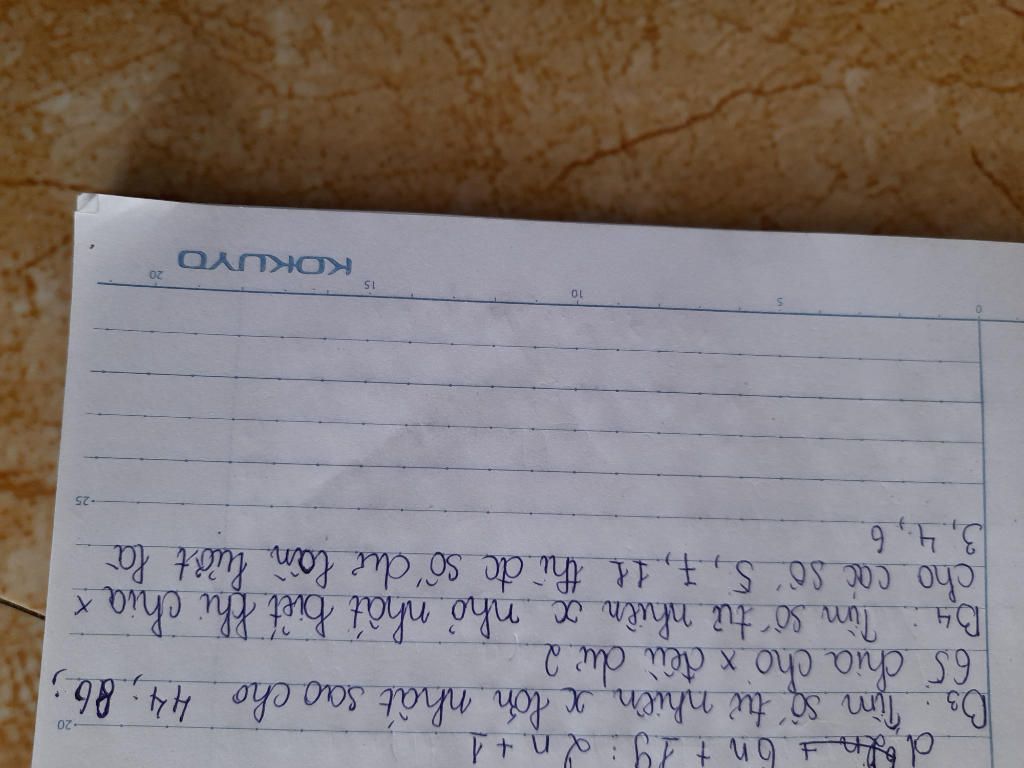 d, 6n + 19 : 2n + 1
20
B3: Tìm số tự nhiên x lớn nhất sao cho 44; 86;
65 chia cho x đều dư 2
B4: Tìm số tự nhiên x nhỏ nhất biết khi chia x
cho các số 5, 7, 11 thì đc số dư lần lượt là
3, 4, 6
25
0 5 10 15 20
KOKUYO